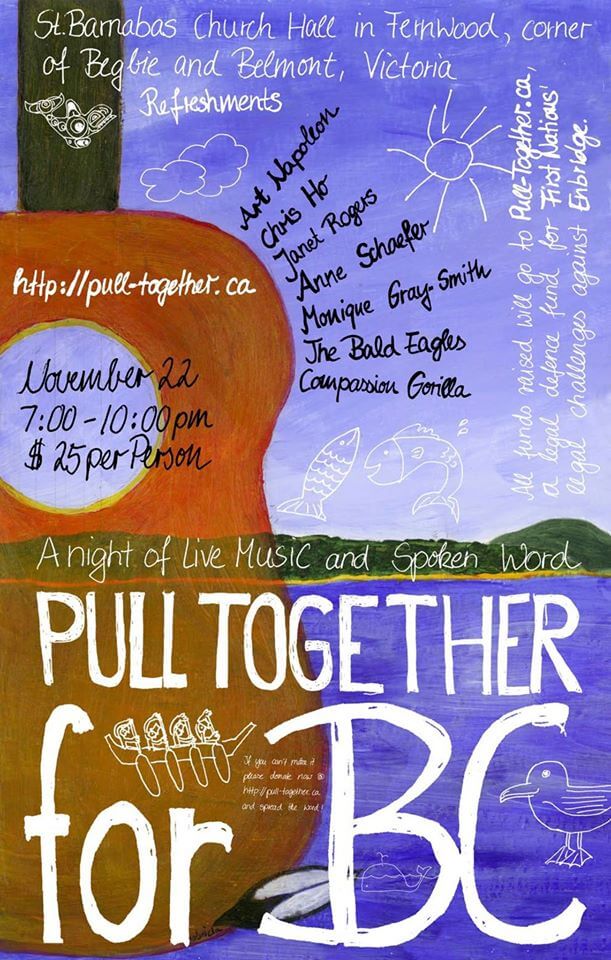 St. Barnabas Church Hall in Fernwood, corner
of Begbie and Belmont, Victoria
Refreshments
Art Napoleon
Chris Ho
Janet Rogers
Anne Schaefer
Monique Gray-Smith
The Bald Eagles
Compassion Gorilla
All funds raised will go to Pull-Together.ca,
a legal defence fund for First Nations'
legal challenges against Enbridge.
http://pull-together.ca
November 22
7:00 - 10:00 pm
$ 25 per Person
A night of Live Music and Spoken Word
PULL TOGETHER
for BC
If you can't make it
please donate now @
http://pull-together.ca
and spread the word!